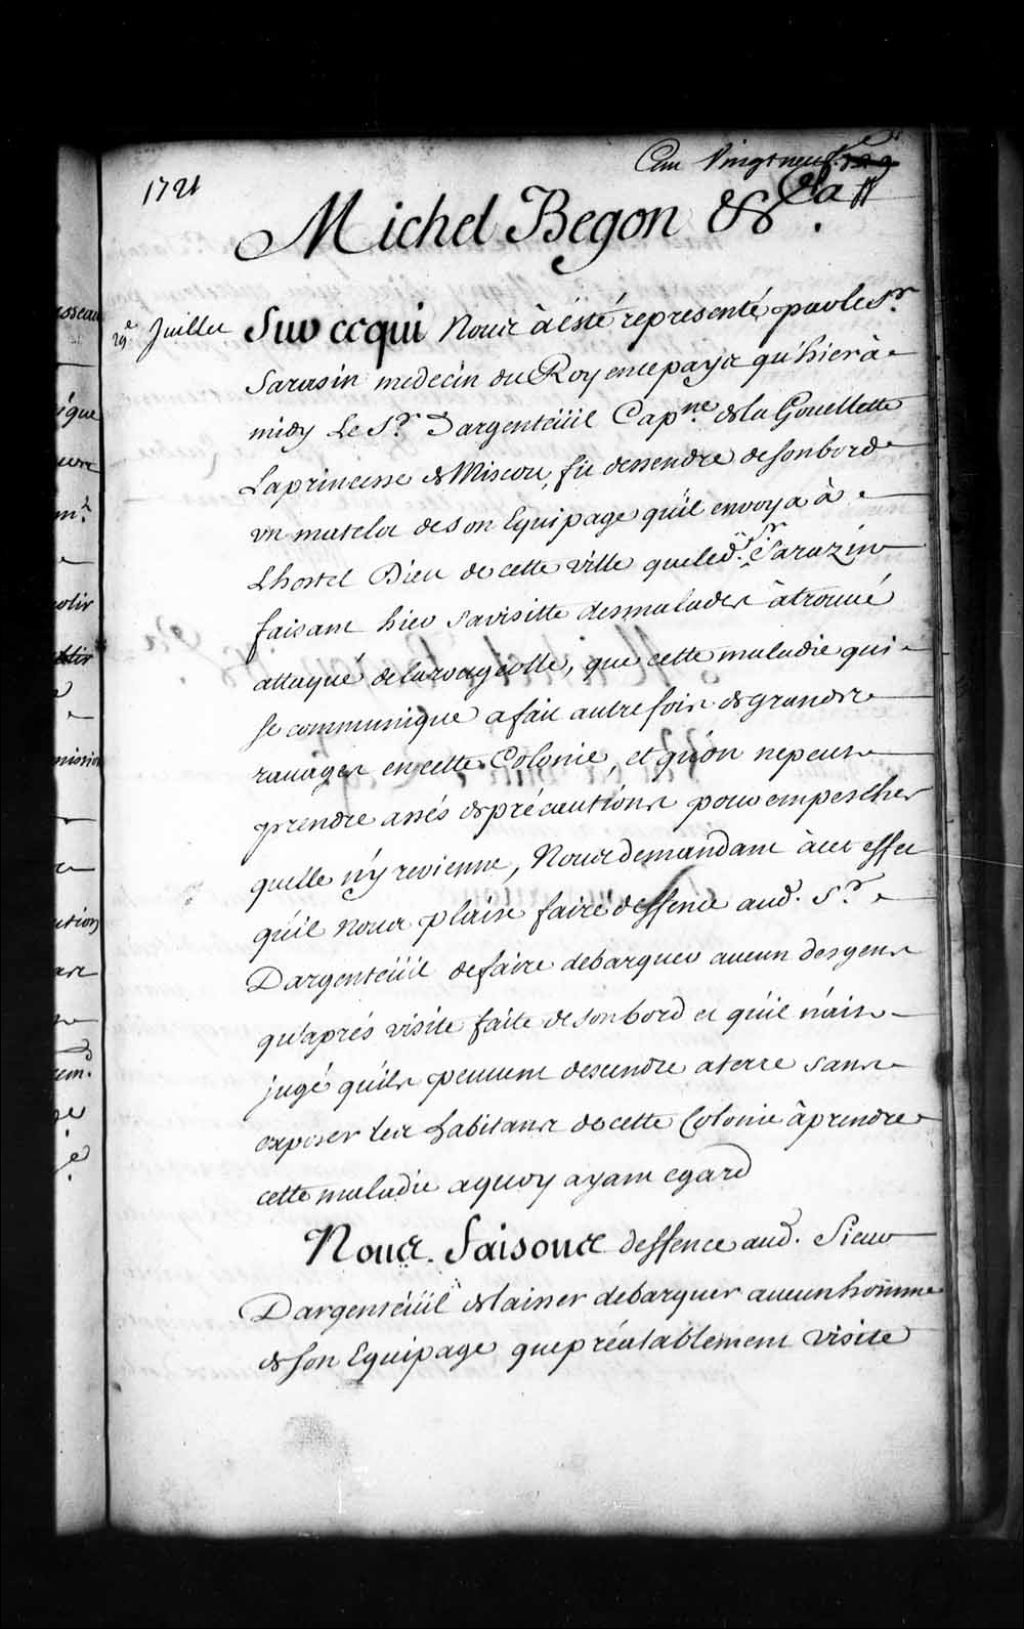 Cent Vingt neuf. 129
1721
Michel Begon &c.a
29e Juillet
Sur ce qui Nous à esté representé par le Sr.
Sarasin medecin du Roy en ce pays qu'hier à
midy Le Sr. Dargenteüil Capne de la Gouellette
La princesse de Miscou, fit dessendre de son bord
un matelot de son Equipage qu'il envoya à
Lhostel Dieu de cette ville que led. Sr Sarazin
faisant hier sa visitte des malades à trouvé
attaqué de la rougeolle, que cette maladie qui
se communique a fait autrefois de grands
ravages en cette Colonie, et qu'on ne peut
prendre assés de précautions pour empescher
quelle n'y revienne, Nous demandant à cet effet
qu'il nous plaise faire deffence aud. Sr.
Dargenteüil de faire debarquer aucun des gens
qu'aprés visite faite de son bord et qu'il n'ait
jugé qu'ils peuvent descendre a terre sans
exposer les habitans de cette Colonie à prendre
cette maladie a quoy ayant egard
Nous faisons deffence aud. Sieur
Dargenteüil de laisser debarquer aucun homme
de son Equipage que préalablement visite